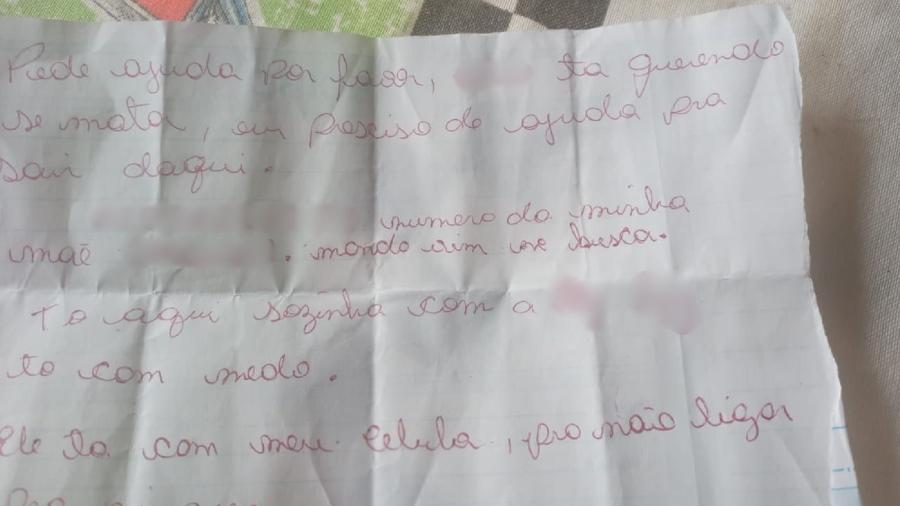 Pede ajuda por favor, ta querendo
se mata, eu presciso de ajuda pra
sair daqui.
numero da minha
mãe . manda vim me busca.
to aqui sozinha com a
to com medo.
Ele ta com meu celula, pra não ligar